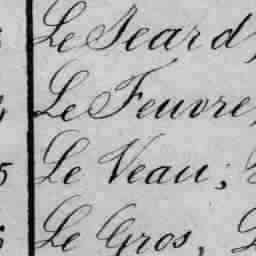 Le Seard,
Le Feuvre,
5 Le Veau;
Le Gros,